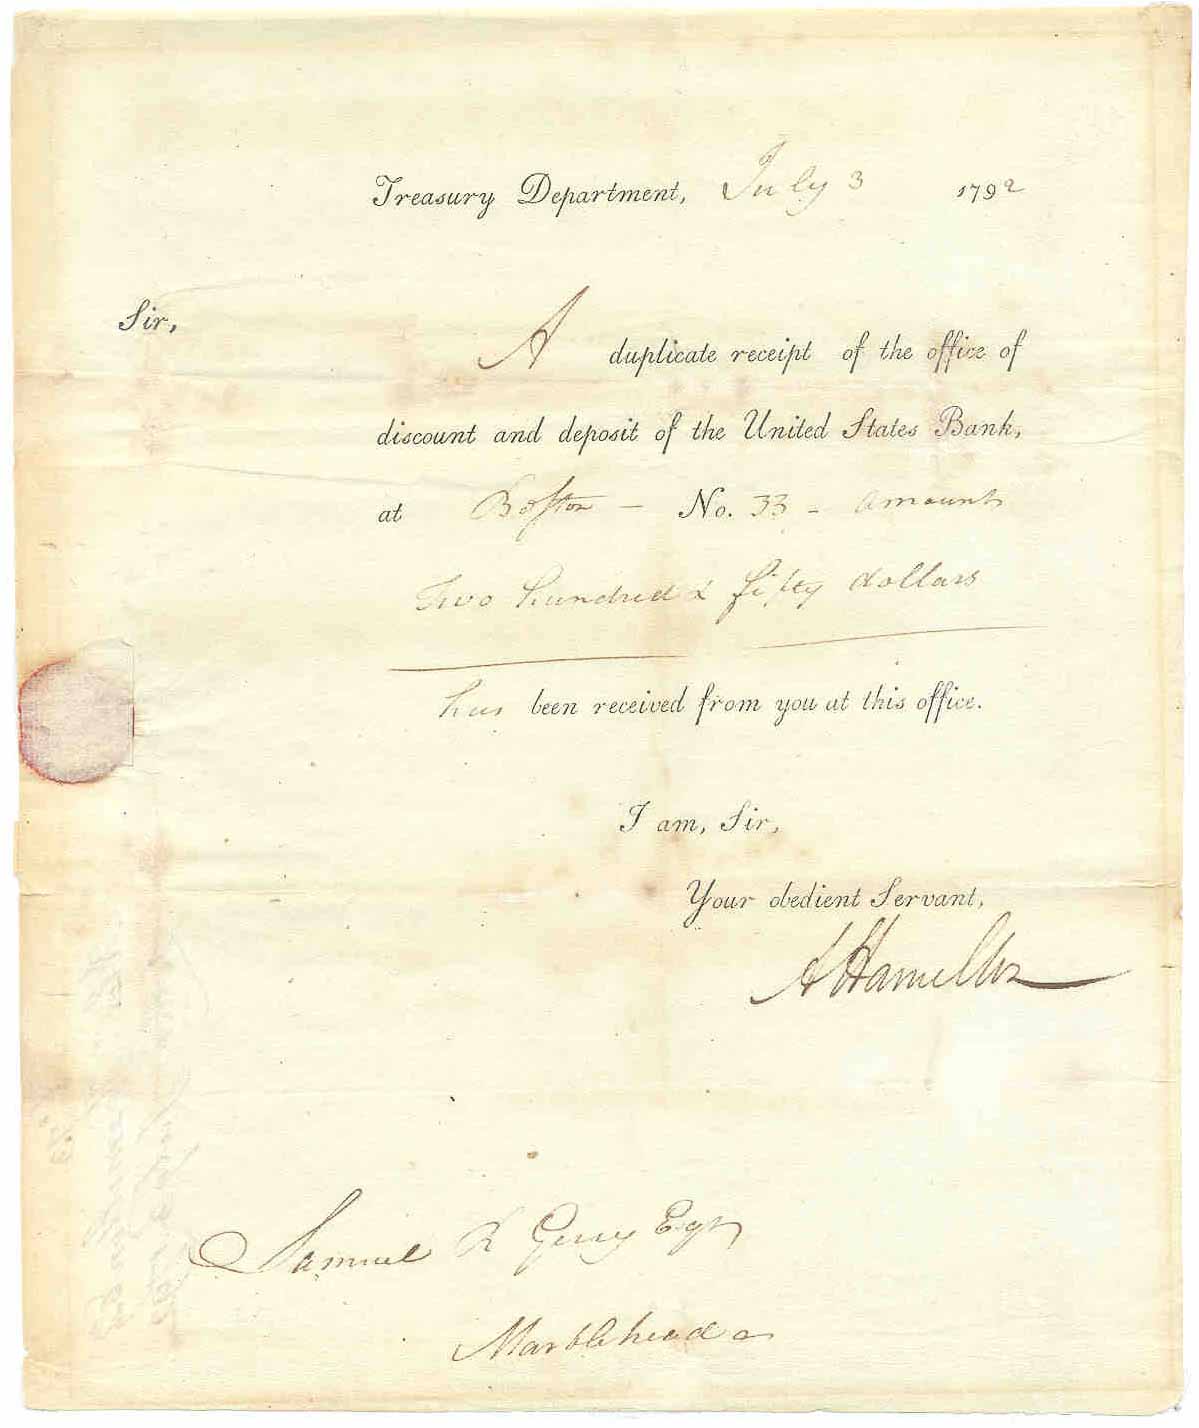 Treasury Department, July 3 1792
Sir,
A duplicate receipt of the office of
discount and deposit of the United States Bank,
at Boston – No. 33 – amount
Two hundred & fifty dollars
has been received from you at this office.
I am, Sir,
Your obedient Servant,
A Hamilton
Samuel R Gerry Esqr
Marblehead